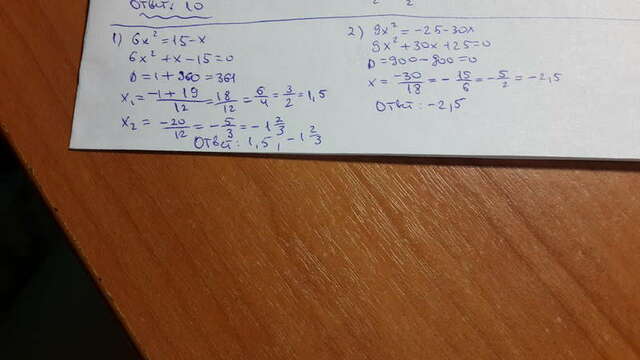 Ответ: 0
1) 6x² = 15 - x
6x² + x - 15 = 0
D = 1 + 360 = 361
x₁ = -1 + 19/12 = 18/12 = 6/4 = 3/2 = 1,5
x₂ = -20/12 = -5/3 = -1 2/3
Ответ: 1,5; -1 2/3
2) 9x² = -25 - 30x
9x² + 30x + 25 = 0
D = 900 - 900 = 0
x = -30/18 = -15/6 = -5/2 = -2,5
Ответ: -2,5